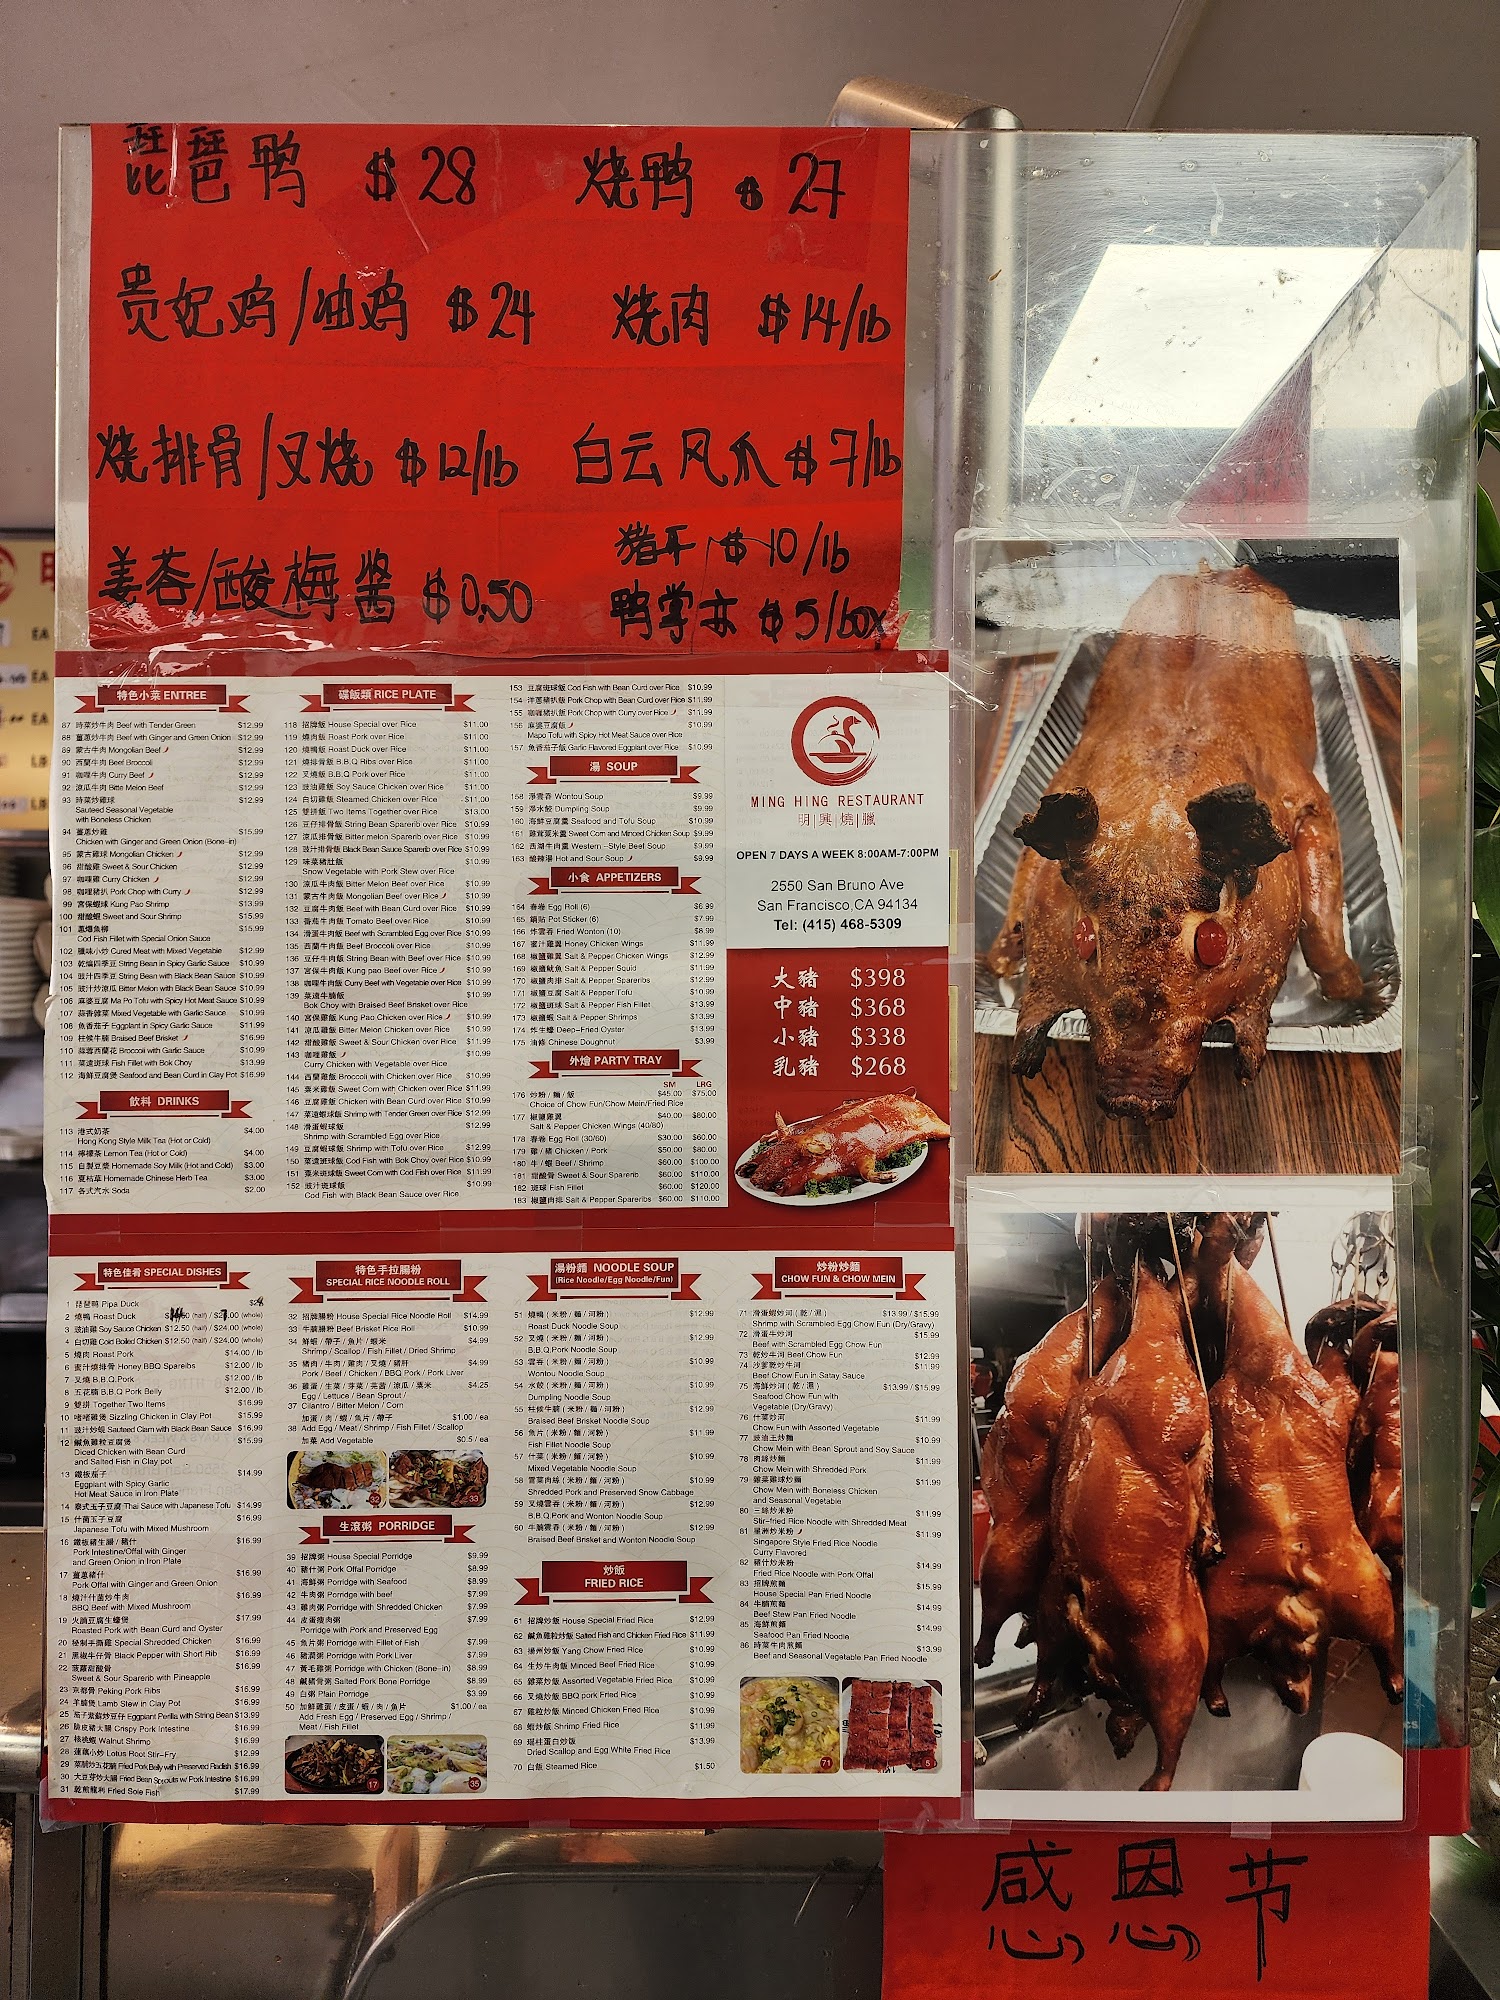 琵琶鸭 $28 烧鸭 $27
贵妃鸡/油鸡 $24 烧肉 $14/lb
烧排骨/叉烧 $12/lb 白云凤爪 $7/lb
猪牙 $10/lb
姜蓉/酸梅酱 $0.50 鸭掌亦 $5/box
特色小菜 ENTREE
87 時菜炒牛肉 Beef with Tender Green $12.99
88 薑蔥炒牛肉 Beef with Ginger and Green Onion $12.99
89 蒙古牛肉 Mongolian Beef $12.99
90 西蘭牛肉 Beef Broccoli $12.99
91 咖喱牛肉 Curry Beef $12.99
92 涼瓜牛肉 Bitte Melon Beef $12.99
93 時菜炒雞球 $12.99
Sauteed Seasonal Vegetable
with Boneless Chicken
94 薑蔥炒雞 $15.99
Chicken with Ginger and Green Onion (Bone-in)
95 蒙古雞球 Mongolian Chicken $12.99
96 甜酸雞 Sweet & Sour Chicken $12.99
97 咖喱雞 Curry Chicken $12.99
98 咖喱豬扒 Pork Chop with Curry $12.99
99 宮保蝦球 Kung Pao Shrimp $13.99
100 甜酸蝦 Sweet and Sour Shrimp $15.99
101 蔥爆魚柳
Cod Fish Fillet with Special Onion Sauce
102 臘味小炒 Cured Meat with Mixed Vegetable $12.99
103 乾煸四季豆 String Bean in Spicy Garlic Sauce $10.99
104 豉汁四季豆 String Bean with Black Bean Sauce $10.99
105 豉汁炒涼瓜 Bitter Melon with Black Bean Sauce $10.99
106 麻婆豆腐 Ma Po Tofu with Spicy Hot Meat Sauce $10.99
107 蒜香雜菜 Mixed Vegetable with Garlic Sauce $10.99
108 魚香茄子 Eggplant in Spicy Garlic Sauce $11.99
109 柱候牛腩 Braised Beef Brisket $16.99
110 蒜蓉西蘭花 Broccoli with Garlic Sauce $10.99
111 菜遠斑球 Fish Fillet with Bok Choy $13.99
112 海鮮豆腐煲 Seafood and Bean Curd in Clay Pot $16.99
飲料 DRINKS
113 港式奶茶 $4.00
Hong Kong Style Milk Tea (Hot or Cold)
114 檸檬茶 Lemon Tea (Hot or Cold) $4.00
115 自製豆漿 Homemade Soy Milk (Hot and Cold) $3.00
116 夏枯草 Homemade Chinese Herb Tea $3.00
117 各式汽水 Soda $2.00
碟飯類 RICE PLATE
118 招牌飯 House Special over Rice $11.00
119 燒肉飯 Roast Pork over Rice $11.00
120 燒鴨飯 Roast Duck over Rice $11.00
121 燒排骨飯 B.B.Q Ribs over Rice $11.00
122 叉燒飯 B.B.Q Pork over Rice $11.00
123 豉油雞飯 Soy Sauce Chicken over Rice $11.00
124 白切雞飯 Steamed Chicken over Rice $11.00
125 雙拼飯 Two Items Together over Rice $13.00
126 豆仔排骨飯 String Bean Sparerib over Rice $10.99
127 涼瓜排骨飯 Bitter melon Sparerib over Rice $10.99
128 豉汁排骨飯 Black Bean Sauce Sparerib over Rice $10.99
129 味菜豬肚飯 $10.99
Snow Vegetable with Pork Stew over Rice
130 涼瓜牛肉飯 Bitter Melon Beef over Rice $10.99
131 蒙古牛肉飯 Mongolian Beef over Rice $10.99
132 豆腐牛肉飯 Beef with Bean Curd over Rice $10.99
133 番茄牛肉飯 Tomato Beef over Rice $10.99
134 滑蛋牛肉飯 Beef with Scrambled Egg over Rice $10.99
135 西蘭牛肉飯 Beef Broccoli over Rice $10.99
136 豆仔牛肉飯 String Bean with Beef over Rice $10.99
137 宮保牛肉飯 Kung pao Beef over Rice $10.99
138 咖喱牛肉飯 Curry Beef with Vegetable over Rice $10.99
139 菜遠牛腩飯 $10.99
Bok Choy with Braised Beef Brisket over Rice
140 宮保雞飯 Kung Pao Chicken over Rice $10.99
141 涼瓜雞飯 Bitter Melon Chicken over Rice $10.99
142 甜酸雞飯 Sweet & Sour Chicken over Rice $11.99
143 咖喱雞飯 $10.99
Curry Chicken with Vegetable over Rice
144 西蘭雞飯 Broccoli with Chicken over Rice $10.99
145 粟米雞飯 Sweet Corn with Chicken over Rice $11.99
146 豆腐雞飯 Chicken with Bean Curd over Rice $10.99
147 菜遠蝦球飯 Shrimp with Tender Green over Rice $12.99
148 滑蛋蝦球飯 $12.99
Shrimp with Scrambled Egg over Rice
149 豆腐蝦球飯 Shrimp with Tofu over Rice $12.99
150 菜遠斑球飯 Cod Fish with Bok Choy over Rice $10.99
151 粟米斑球飯 Sweet Corn with Cod Fish over Rice $11.99
152 豉汁斑球飯 $10.99
Cod Fish with Black Bean Sauce over Rice
153 豆腐斑球飯 Cod Fish with Bean Curd over Rice $10.99
154 洋蔥豬扒飯 Pork Chop with Bean Curd over Rice $11.99
155 咖喱豬扒飯 Pork Chop with Curry over Rice $11.99
156 麻婆豆腐飯 $10.99
Mapo Tofu with Spicy Hot Meat Sauce over Rice
157 魚香茄子飯 Garlic Flavored Eggplant over Rice $10.99
湯 SOUP
158 淨雲吞 Wontou Soup $9.99
159 淨水餃 Dumpling Soup $9.99
160 海鮮豆腐羹 Seafood and Tofu Soup $10.99
161 雞茸粟米羹 Sweet Corn and Minced Chicken Soup $9.99
162 西湖牛肉羹 Western -Style Beef Soup $9.99
163 酸辣湯 Hot and Sour Soup $9.99
小食 APPETIZERS
164 春卷 Egg Roll (6) $6.99
165 鍋貼 Pot Sticker (6) $7.99
166 炸雲吞 Fried Wonton (10) $8.99
167 蜜汁雞翼 Honey Chicken Wings $11.99
168 椒鹽雞翼 Salt & Pepper Chicken Wings $12.99
169 椒鹽魷魚 Salt & Pepper Squid $11.99
170 椒鹽肉排 Salt & Pepper Spareribs $12.99
171 椒鹽豆腐 Salt & Pepper Tofu $10.99
172 椒鹽斑球 Salt & Pepper Fish Fillet $13.99
173 椒鹽蝦 Salt & Pepper Shrimps $13.99
174 炸生蠔 Deep-Fried Oyster $13.99
175 油條 Chinese Doughnut $3.99
外燴 PARTY TRAY
SM LRG
176 炒粉 / 麵 / 飯 $45.00 $75.00
Choice of Chow Fun/Chow Mein/Fried Rice
177 椒鹽雞翼 $40.00 $80.00
Salt & Pepper Chicken Wings (40/80)
178 春卷 Egg Roll (30/60) $30.00 $60.00
179 雞 / 豬 Chicken / Pork $50.00 $80.00
180 牛 / 蝦 Beef / Shrimp $60.00 $100.00
181 甜酸骨 Sweet & Sour Sparerib $60.00 $110.00
182 斑球 Fish Fillet $60.00 $120.00
183 椒鹽肉排 Salt & Pepper Spareribs $60.00 $110.00
MING HING RESTAURANT
明|興|燒|臘
OPEN 7 DAYS A WEEK 8:00AM-7:00PM
2550 San Bruno Ave
San Francisco,CA 94134
Tel: (415) 468-5309
大豬 $398
中豬 $368
小豬 $338
乳豬 $268
特色佳肴 SPECIAL DISHES
1 琵琶鴨 Pipa Duck $28
2 燒鴨 Roast Duck (half) / $27.00 (whole)
3 豉油雞 Soy Sauce Chicken $12.50 (half) / $24.00 (whole)
4 白切雞 Cold Boiled Chicken $12.50 (half) / $24.00 (whole)
5 燒肉 Roast Pork $14.00 / lb
6 蜜汁燒排骨 Honey BBQ Spareibs $12.00 / lb
7 叉燒 B.B.Q.Pork $12.00 / lb
8 五花腩 B.B.Q Pork Belly $12.00 / lb
9 雙拼 Together Two Items $16.99
10 啫啫雞煲 Sizzling Chicken in Clay Pot $15.99
11 豉汁炒蜆 Sauteed Clam with Black Bean Sauce $16.99
12 鹹魚雞粒豆腐煲 $15.99
Diced Chicken with Bean Curd
and Salted Fish in Clay pot
13 鐵板茄子 $14.99
Eggplant with Spicy Garlic
Hot Meat Sauce in Iron Plate
14 泰式玉子豆腐 Thai Sauce with Japanese Tofu $14.99
15 什菌玉子豆腐 $16.99
Japanese Tofu with Mixed Mushroom
16 鐵板豬生腸 / 豬什 $16.99
Pork Intestine/Offal with Ginger
and Green Onion in Iron Plate
17 薑蔥豬什 $16.99
Pork Offal with Ginger and Green Onion
18 燒汁什菌炒牛肉 $16.99
BBQ Beef with Mixed Mushroom
19 火腩豆腐生蠔煲 $17.99
Roasted Pork with Bean Curd and Oyster
20 秘制手撕雞 Special Shredded Chicken $16.99
21 黑椒牛仔骨 Black Pepper with Short Rib $16.99
22 菠蘿甜酸骨 $16.99
Sweet & Sour Sparerib with Pineapple
23 京都骨 Peking Pork Ribs $16.99
24 羊腩煲 Lamb Stew in Clay Pot $16.99
25 茄子紫蘇炒豆仔 Eggplant Perilla with String Bean $13.99
26 脆皮豬大腸 Crispy Pork Intestine $16.99
27 核桃蝦 Walnut Shrimp $16.99
28 蓮藕小炒 Lotus Root Stir-Fry $12.99
29 菜脯炒五花腩 Fried Pork Belly with Preserved Radish $16.99
30 大豆芽炒大腸 Fried Bean Sprouts w/ Pork Intestine $16.99
31 乾煎龍利 Fried Sole Fish $17.99
特色手拉腸粉
SPECIAL RICE NOODLE ROLL
32 招牌腸粉 House Special Rice Noodle Roll $14.99
33 牛腩腸粉 Beef Brisket Rice Roll $10.99
34 鮮蝦 / 帶子 / 魚片 / 蝦米 $4.99
Shrimp / Scallop / Fish Fillet / Dried Shrimp
35 豬肉 / 牛肉 / 雞肉 / 叉燒 / 豬肝 $4.99
Pork / Beef / Chicken / BBQ Pork / Pork Liver
36 雞蛋 / 生菜 / 芽菜 / 芫荽 / 涼瓜 / 粟米 $4.25
Egg / Lettuce / Bean Sprout /
37 Cilantro / Bitter Melon / Corn
加蛋 / 肉 / 蝦 / 魚片 / 帶子 $1.00 / ea
38 Add Egg / Meat / Shrimp / Fish Fillet / Scallop
加菜 Add Vegetable $0.5 / ea
32
33
生滾粥 PORRIDGE
39 招牌粥 House Special Porridge $9.99
40 豬什粥 Pork Offal Porridge $8.99
41 海鮮粥 Porridge with Seafood $8.99
42 牛肉粥 Porridge with beef $7.99
43 雞肉粥 Porridge with Shredded Chicken $7.99
44 皮蛋瘦肉粥 $7.99
Porridge with Pork and Preserved Egg
45 魚片粥 Porridge with Fillet of Fish $7.99
46 豬潤粥 Porridge with Pork Liver $7.99
47 黃毛雞粥 Porridge with Chicken (Bone-in) $8.99
48 鹹豬骨粥 Salted Pork Bone Porridge $8.99
49 白粥 Plain Porridge $3.99
50 加鮮雞蛋 / 皮蛋 / 蝦 / 肉 / 魚片 $1.00 / ea
Add Fresh Egg / Preserved Egg / Shrimp /
Meat / Fish Fillet
17
35
湯粉麵 NOODLE SOUP
(Rice Noodle/Egg Noodle/Fun)
51 燒鴨 ( 米粉 / 麵 / 河粉 ) $12.99
Roast Duck Noodle Soup
52 叉燒 ( 米粉 / 麵 / 河粉 ) $12.99
B.B.Q.Pork Noodle Soup
53 雲吞 ( 米粉 / 麵 / 河粉 ) $10.99
Wontou Noodle Soup
54 水餃 ( 米粉 / 麵 / 河粉 ) $10.99
Dumpling Noodle Soup
55 柱候牛腩 ( 米粉 / 麵 / 河粉 ) $12.99
Braised Beef Brisket Noodle Soup
56 魚片 ( 米粉 / 麵 / 河粉 ) $11.99
Fish Fillet Noodle Soup
57 什菜 ( 米粉 / 麵 / 河粉 ) $10.99
Mixed Vegetable Noodle Soup
58 雪菜肉絲 ( 米粉 / 麵 / 河粉 ) $10.99
Shredded Pork and Preserved Snow Cabbage
59 叉燒雲吞 ( 米粉 / 麵 / 河粉 ) $12.99
B.B.Q.Pork and Wonton Noodle Soup
60 牛腩雲吞 ( 米粉 / 麵 / 河粉 ) $12.99
Braised Beef Brisket and Wonton Noodle Soup
炒飯
FRIED RICE
61 招牌炒飯 House Special Fried Rice $12.99
62 鹹魚雞粒炒飯 Salted Fish and Chicken Fried Rice $11.99
63 楊州炒飯 Yang Chow Fried Rice $10.99
64 生炒牛肉飯 Minced Beef Fried Rice $10.99
65 雜菜炒飯 Assorted Vegetable Fried Rice $10.99
66 叉燒炒飯 BBQ pork Fried Rice $10.99
67 雞粒炒飯 Minced Chicken Fried Rice $10.99
68 蝦炒飯 Shrimp Fried Rice $11.99
69 瑤柱蛋白炒飯 $13.99
Dried Scallop and Egg White Fried Rice
70 白飯 Steamed Rice $1.50
炒粉炒麵
CHOW FUN & CHOW MEIN
71 滑蛋蝦炒河 ( 乾 / 濕 ) $13.99 / $15.99
Shrimp with Scrambled Egg Chow Fun (Dry/Gravy)
72 滑蛋牛炒河 $15.99
Beef with Scrambled Egg Chow Fun
73 乾炒牛河 Beef Chow Fun $12.99
74 沙爹乾炒牛河 $11.99
Beef Chow Fun in Satay Sauce
75 海鮮炒河 ( 乾 / 濕 ) $13.99 / $15.99
Seafood Chow Fun with
Vegetable (Dry/Gravy)
76 什菜炒河 $11.99
Chow Fun with Assorted Vegetable
77 豉油王炒麵 $10.99
Chow Mein with Bean Sprout and Soy Sauce
78 肉絲炒麵 $11.99
Chow Mein with Shredded Pork
79 雜菜雞球炒麵 $11.99
Chow Mein with Boneless Chicken
and Seasonal Vegetable
80 三絲炒米粉 $11.99
Stir-fried Rice Noodle with Shredded Meat
81 星洲炒米粉 $11.99
Singapore Style Fried Rice Noodle
Curry Flavored
82 豬什炒米粉 $14.99
Fried Rice Noodle with Pork Offal
83 招牌煎麵 $15.99
House Special Pan Fried Noodle
84 牛腩煎麵 $14.99
Beef Stew Pan Fried Noodle
85 海鮮煎麵 $14.99
Seafood Pan Fried Noodle
86 時菜牛肉煎麵 $13.99
Beef and Seasonal Vegetable Pan Fried Noodle
71
5
感恩节